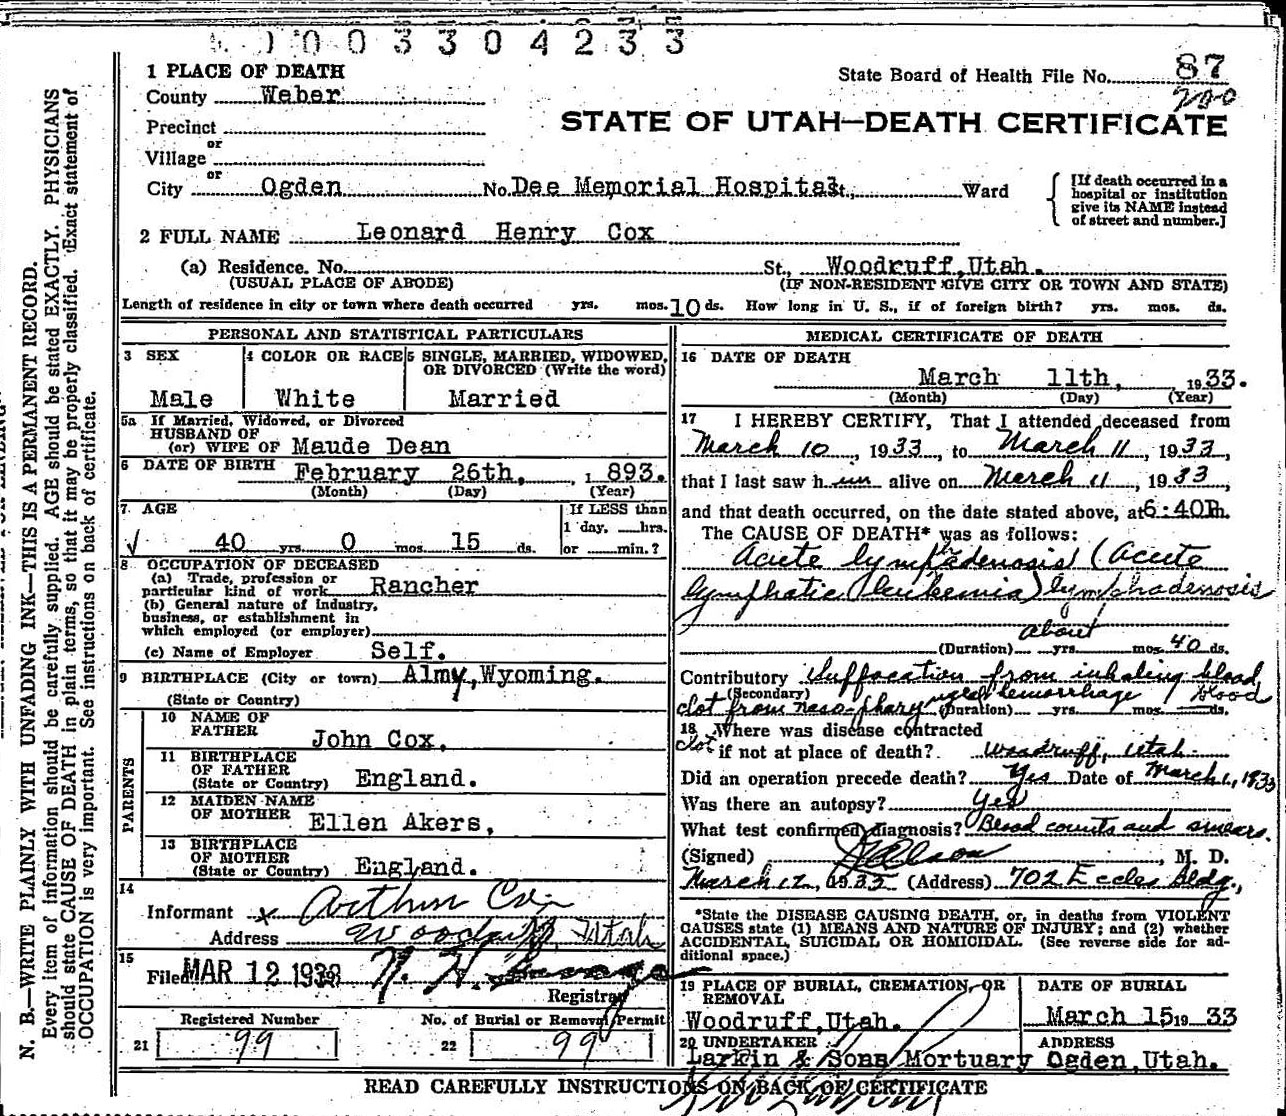 0 0 3 3 0 4 2 3 3
1 PLACE OF DEATH
State Board of Health File No. 87
County Weber
200
STATE OF UTAH—DEATH CERTIFICATE
Precinct
or
Village
or
City Ogden No. Dee Memorial Hospital St., Ward
[If death occurred in a hospital or institution give its NAME instead of street and number.]
2 FULL NAME Leonard Henry Cox
(a) Residence. No. St., Woodruff, Utah.
(USUAL PLACE OF ABODE) (IF NON-RESIDENT GIVE CITY OR TOWN AND STATE)
Length of residence in city or town where death occurred yrs. mos. 10 ds. How long in U. S., if of foreign birth? yrs. mos. ds.
PERSONAL AND STATISTICAL PARTICULARS
3 SEX
Male
4 COLOR OR RACE
White
5 SINGLE, MARRIED, WIDOWED,
OR DIVORCED (Write the word)
Married
5a If Married, Widowed, or Divorced
HUSBAND OF
(or) WIFE OF Maude Dean
6 DATE OF BIRTH February 26th, 1893.
(Month) (Day) (Year)
7 AGE
If LESS than
1 day, hrs.
or min.?
√ 40 yrs. 0 mos. 15 ds.
8 OCCUPATION OF DECEASED
(a) Trade, profession or
particular kind of work Rancher
(b) General nature of industry,
business, or establishment in
which employed (or employer)
(c) Name of Employer Self.
9 BIRTHPLACE (City or town) Almy, Wyoming.
(State or Country)
PARENTS
10 NAME OF
FATHER John Cox,
11 BIRTHPLACE
OF FATHER
(State or Country) England.
12 MAIDEN NAME
OF MOTHER Ellen Akers,
13 BIRTHPLACE
OF MOTHER
(State or Country) England.
14
Informant x Arthur Cox
Address Woodruff, Utah
15
Filed MAR 12 1933
Registrar
Registered Number
21 99
No. of Burial or Removal Permit
22 99
MEDICAL CERTIFICATE OF DEATH
16 DATE OF DEATH
March 11th, 1933.
(Month) (Day) (Year)
17 I HEREBY CERTIFY, That I attended deceased from
March 10, 1933, to March 11, 1933,
that I last saw h im alive on March 11, 1933,
and that death occurred, on the date stated above, at 6:40P.m.
The CAUSE OF DEATH* was as follows:
Acute lymphadenosis (Acute
lymphatic leukemia) lymphadenosis
about
(Duration) yrs. mos. 40 ds.
Contributory Suffocation from inhaling blood
(Secondary)
clot from naso-pharyngeal hemorrhage / blood
(Duration) yrs. mos. ds.
18 Where was disease contracted
clot
if not at place of death? Woodruff, Utah
Did an operation precede death? Yes Date of March 1, 1933
Was there an autopsy? Yes
What test confirmed diagnosis? Blood counts and smears.
(Signed) , M. D.
March 12, 1933 (Address) 702 Eccles Bldg.,
*State the DISEASE CAUSING DEATH, or, in deaths from VIOLENT
CAUSES state (1) MEANS AND NATURE OF INJURY; and (2) whether
ACCIDENTAL, SUICIDAL OR HOMICIDAL. (See reverse side for ad-
ditional space.)
19 PLACE OF BURIAL, CREMATION, OR
REMOVAL
Woodruff, Utah.
DATE OF BURIAL
March 15 1933
20 UNDERTAKER
Larkin & Sons Mortuary
ADDRESS
Ogden, Utah.
READ CAREFULLY INSTRUCTIONS ON BACK OF CERTIFICATE
N. B.—WRITE PLAINLY WITH UNFADING INK—THIS IS A PERMANENT RECORD.
Every item of information should be carefully supplied. AGE should be stated EXACTLY. PHYSICIANS
should state CAUSE OF DEATH in plain terms, so that it may be properly classified. Exact statement of
OCCUPATION is very important. See instructions on back of certificate.